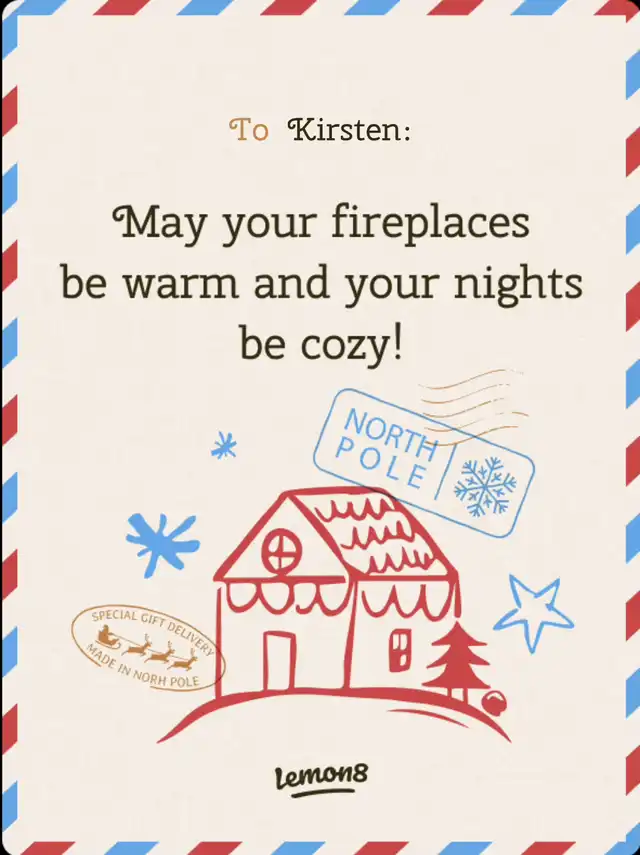 To Kirsten:
May your fireplaces
be warm and your nights
be cozy!
NORTH
POLE
SPECIAL GIFT DELIVERY
MADE IN NORH POLE
lemon8